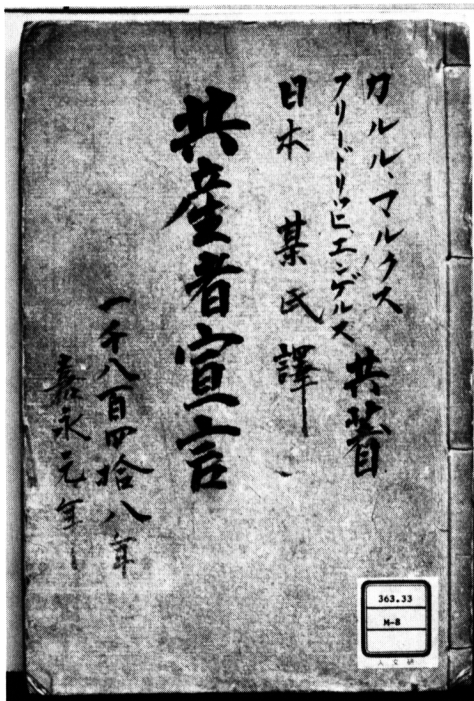 カルル、マルクス
フリードリッヒ、エンゲルス
共著
日本 某氏 譯
共産者宣言
一千八百四拾八年
嘉永元年
363.33
M-8
人文研